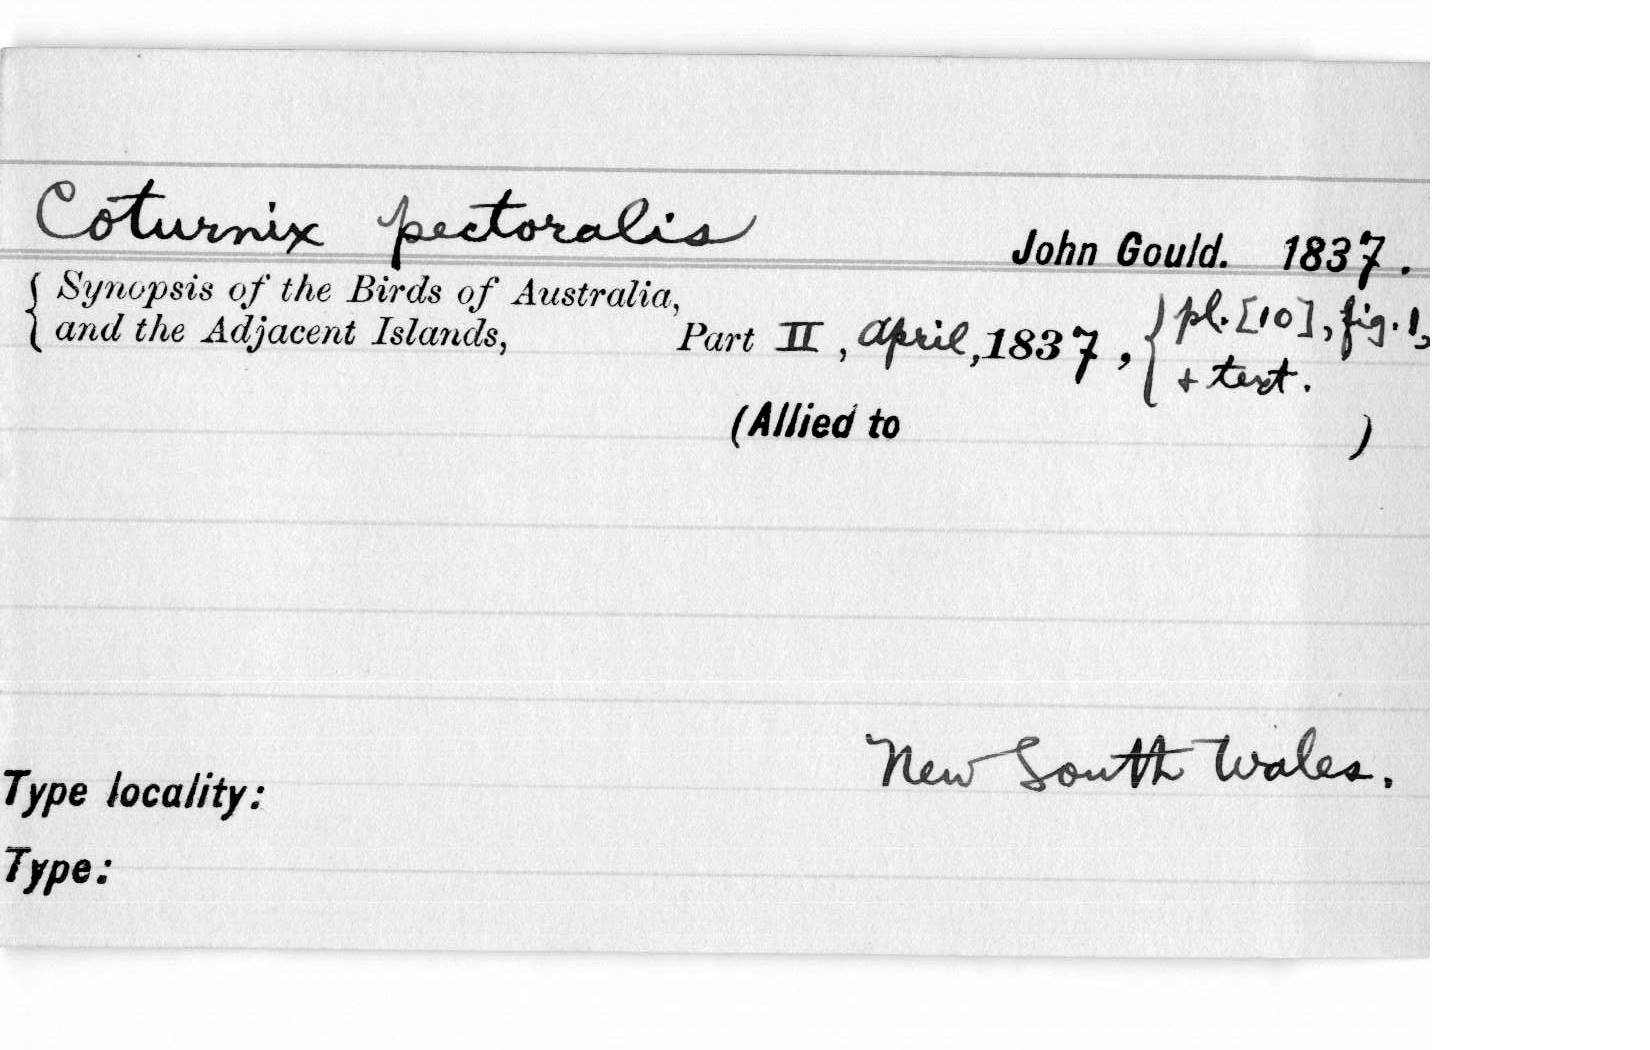 Coturnix pectoralis John Gould. 1837.
{ Synopsis of the Birds of Australia,
and the Adjacent Islands, Part II, April, 1837, { pl. [10], fig. 1,
+ text.
(Allied to )
New South Wales.
Type locality:
Type: